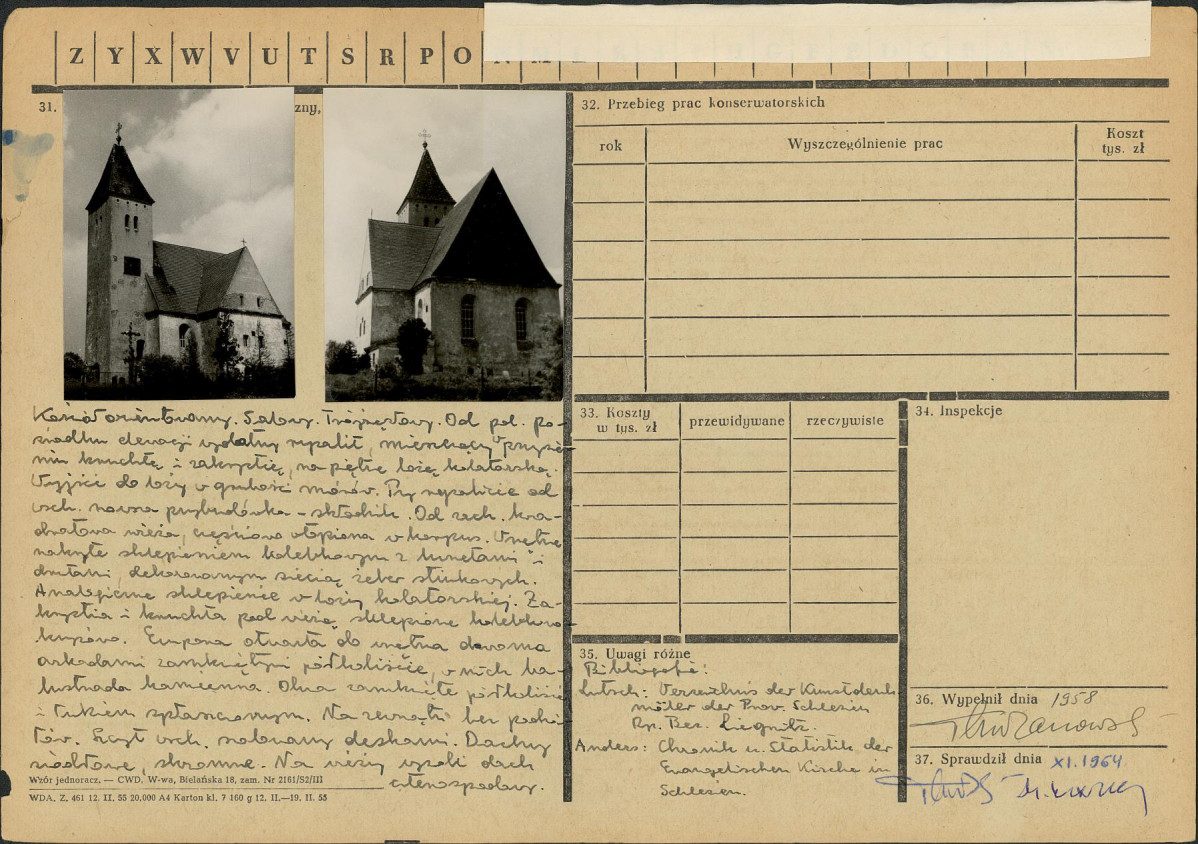 Z Y X W V U T S R P O N M
31.
zny,
Kościół orientowany. Salowy. Trójprzęsłowy. Od poł. po-
siada elewacji wydatny ryzalit, mieszczący w przyzie-
miu kruchtę i zakrystię, na piętrze lożę kolatorską.
Wyjście do loży w grubości murów. Przy ryzalicie od
wsch. nowsza przybudówka - składzik. Od zach. kwa-
dratowa wieża, częściowo wtopiona w korpus. Wnętrze
nakryte sklepieniem kolebkowym z lunetami i
dekorowanym siecią żeber stiukowych.
Analogiczne sklepienie w loży kolatorskiej. Za-
krystia i kruchta pod wieżą sklepione kolebkowo-
krzyżowo. Empora otwarta do wnętrza dwoma
arkadami zamkniętymi półkoliście, w nich ba-
lustrada kamienna. Okna zamknięte półkoliście
i łukiem spłaszczonym. Na zewnątrz bez podzia-
łów. Szczyt wsch. szalowany deskami. Dachy
siodłowe, stromne. Na wieży wysoki dach
czterospadowy.
Wzór jednoracz. — CWD. W-wa, Bielańska 18, zam. Nr 2161/S2/III
WDA. Z. 461 12. II. 55 20,000 A4 Karton kl. 7 160 g 12. II.—19. II. 55
32. Przebieg prac konserwatorskich
rok Wyszczególnienie prac Koszt tys. zł
33. Koszty w tys. zł przewidywane rzeczywiste
34. Inspekcje
35. Uwagi różne
Bibliografia:
Lutsch: Verzeichnis der Kunstdenk-
mäler der Prov. Schlesien
Rg. Bez. Liegnitz.
Anders: Chronik u. Statistik der
Evangelischen Kirche in
Schlesien.
36. Wypełnił dnia 1958
37. Sprawdził dnia XI.1964